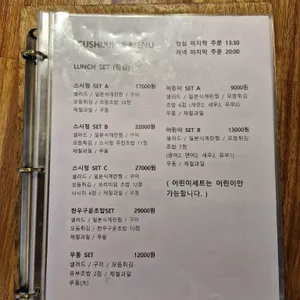 MENU
점심 마지막 주문 13:30
저녁 마지막 주문 20:00
LUNCH SET (점심)
스시정 SET A 17000원
샐러드 / 일본식계란찜 / 구이
모듬튀김 / 모듬초밥 10점
제철과일 / 우동
스시정 SET B 22000원
샐러드 / 일본식계란찜 / 구이
모듬튀김 / 스시정 추천초밥 11점
제철과일 / 우동
스시정 SET C 27000원
샐러드 / 일본식계란찜 / 구이
모듬튀김 / 프리미엄 초밥 12점
사시미 4점 / 제철과일 / 우동
한우구운초밥SET 29000원
샐러드 / 일본식계란찜 / 구이
모듬튀김 / 한우구운초밥 10점
제철과일 / 우동
우동 SET 12000원
샐러드 / 구이 / 모듬튀김
유부초밥 2점 / 제철과일
우동(大)
어린이 SET A 9000원
샐러드 / 일본식계란찜 / 모듬튀김
초밥 6점 (계란2, 새우2, 유부2)
우동 / 제철과일
어린이 SET B 13000원
샐러드 / 일본식계란찜 / 모듬튀김
초밥 7점
(광어2, 연어2, 새우2, 유부1)
우동 / 제철과일
( 어린이세트는 어린이만
가능합니다. )